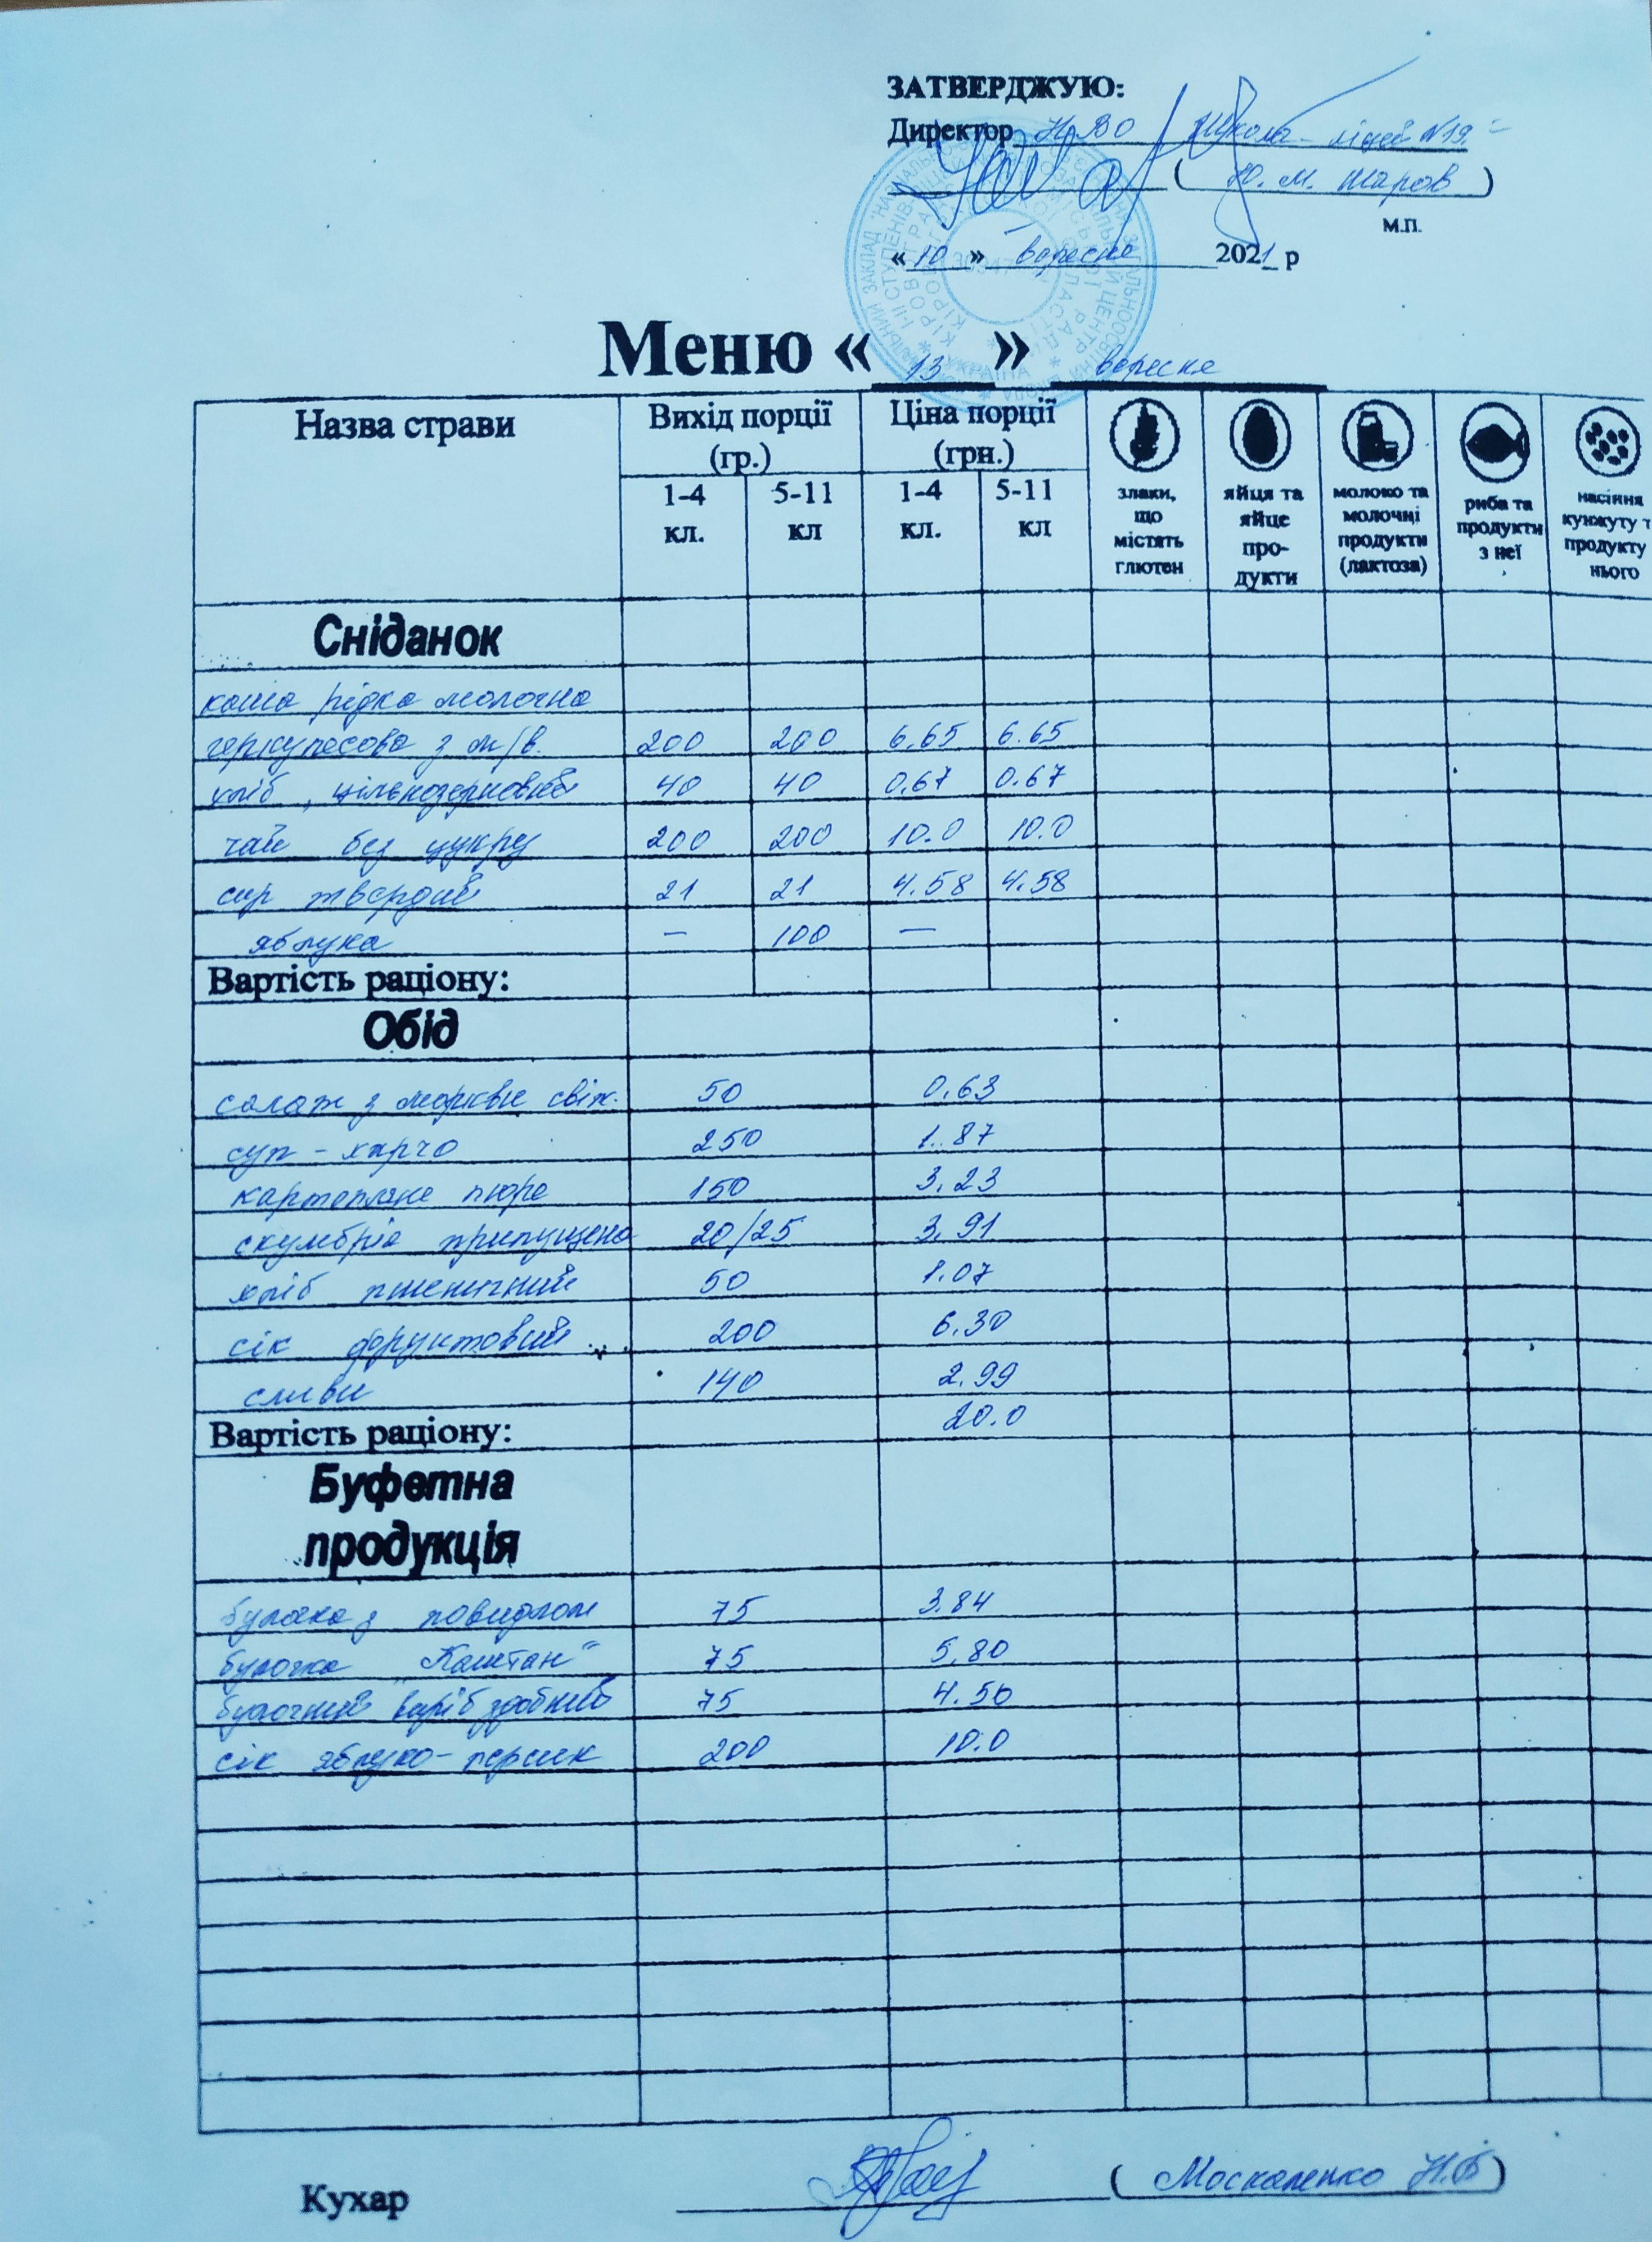 ЗАТВЕРДЖУЮ:
Директор НВО Школа-ліцей №19
( Ю. М. Шаров )
М.П.
« 10 » вересня 2021 р
Меню « 13 » вересня
Назва страви Вихід порції (гр.) Ціна порції (грн.)
1-4 кл. 5-11 кл 1-4 кл. 5-11 кл
злаки, що містять глютен
яйця та яйце про- дукти
молоко та молочні продукти (лактоза)
риба та продукти з неї
насіння кунжуту т продукту нього
Сніданок
каша рідка молочна
геркулесова з м/в. 200 200 6.65 6.65
хліб, цільнозерновий 40 40 0.67 0.67
чай без цукру 200 200 10.0 10.0
сир твердий 21 21 4.58 4.58
яблука — 100 —
Вартість раціону:
Обід
салат з моркви свіж. 50 0.63
суп-харчо 250 1.87
картопляне пюре 150 3.23
скумбрія припущена 20/25 3.91
хліб пшеничний 50 1.07
сік фруктовий 200 6.30
сливи 140 2.99
Вартість раціону: 20.0
Буфетна
продукція
булочка з повидлом 75 3.84
булочка „Каштан" 75 5.80
булочний виріб здобний 75 4.50
сік яблуко-персик 200 10.0
Кухар ( Москаленко Н.Б )